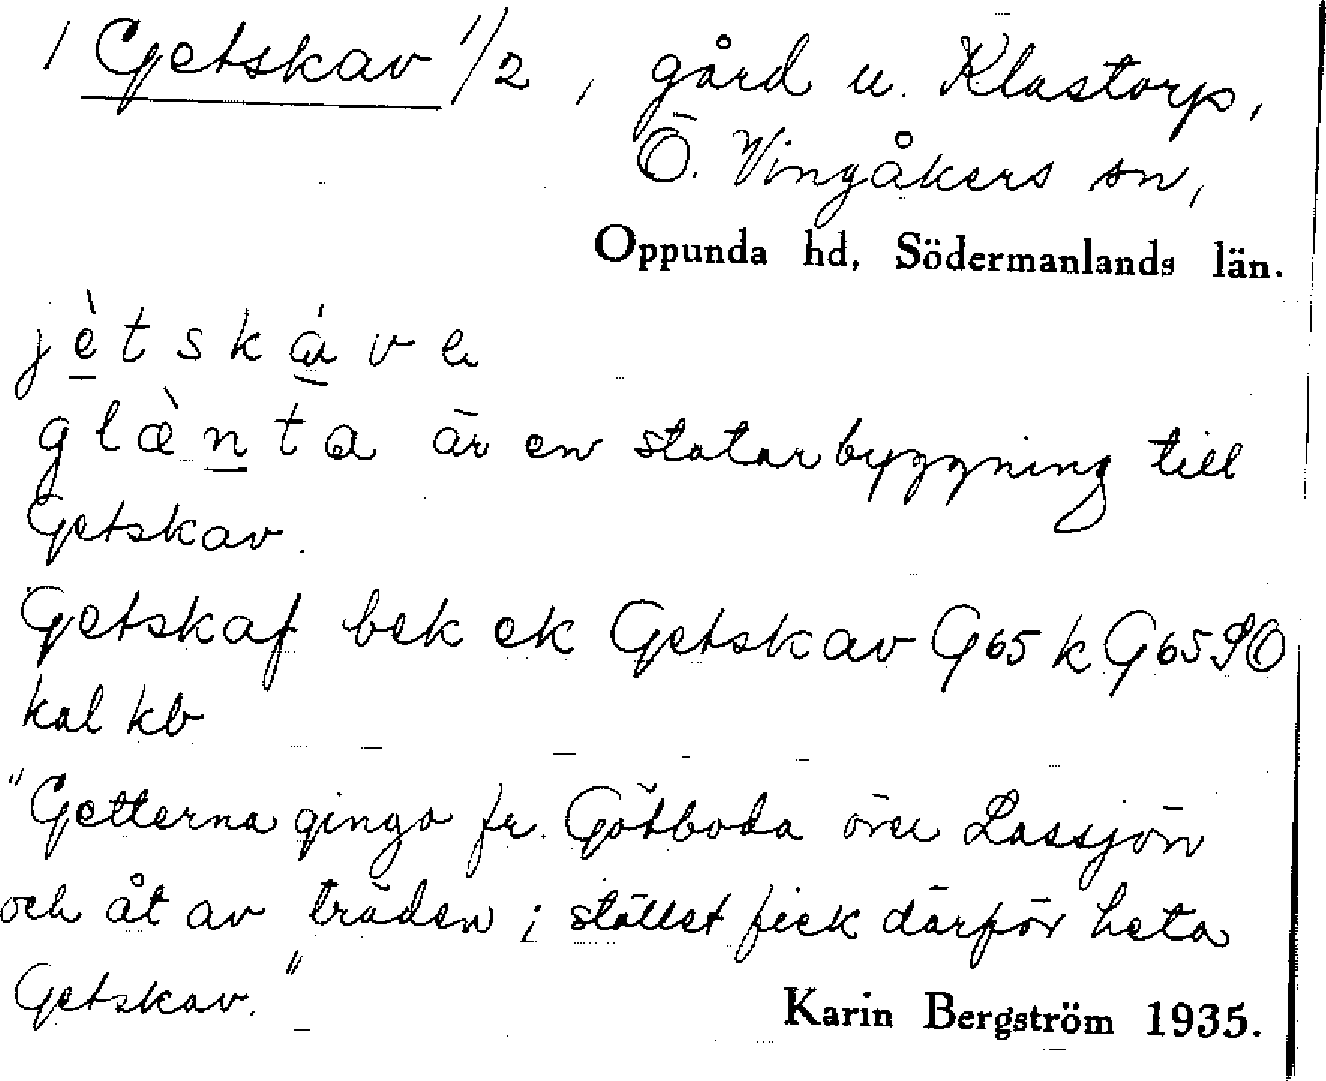 1 Getskav 1/2, gård u. Klastorp,
Ö. Vingåkers sn,
Oppunda hd, Södermanlands län.
jètskáve
glæ̀nta är en statarbyggning till
Getskav.
Getskaf bek ek Getskav G65 k G65 SO
kal kb
"Getterna gingo fr. Götboda över Lassjön
och åt av träden; stället fick därför heta
Getskav."
Karin Bergström 1935.